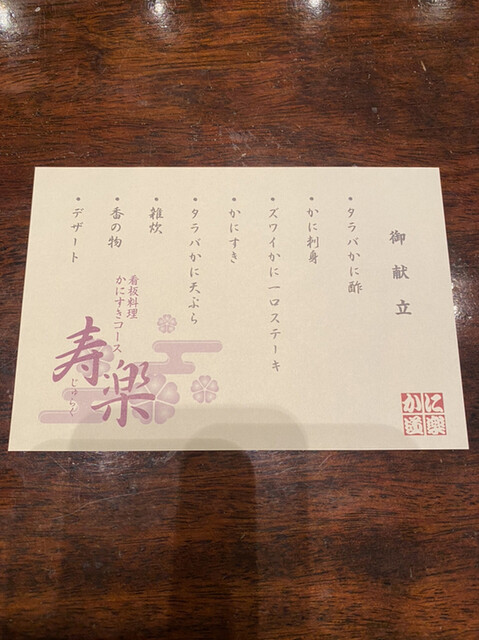 御献立
・タラバかに酢
・かに刺身
・ズワイかに一口ステーキ
・かにすき
・タラバかに天ぷら
・雑炊
・香の物
・デザート
看板料理
かにすきコース
寿楽
じゅらく
かに道楽